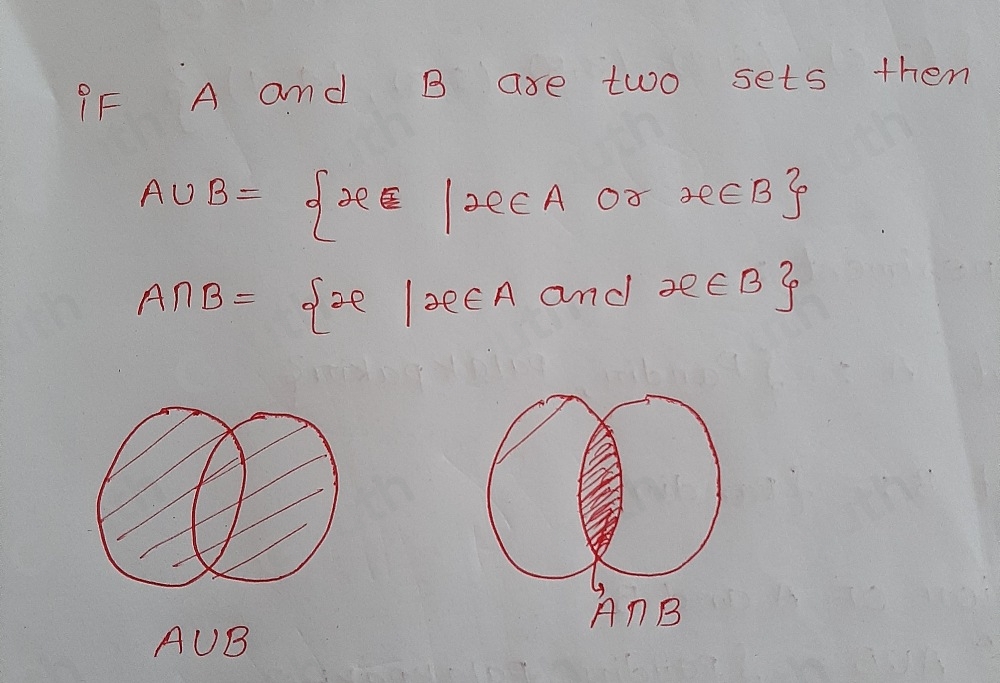 iF A and B are two sets then
A∪B= {x |x∈A or x∈B}
A∩B= {x |x∈A and x∈B}
A∩B
A∪B